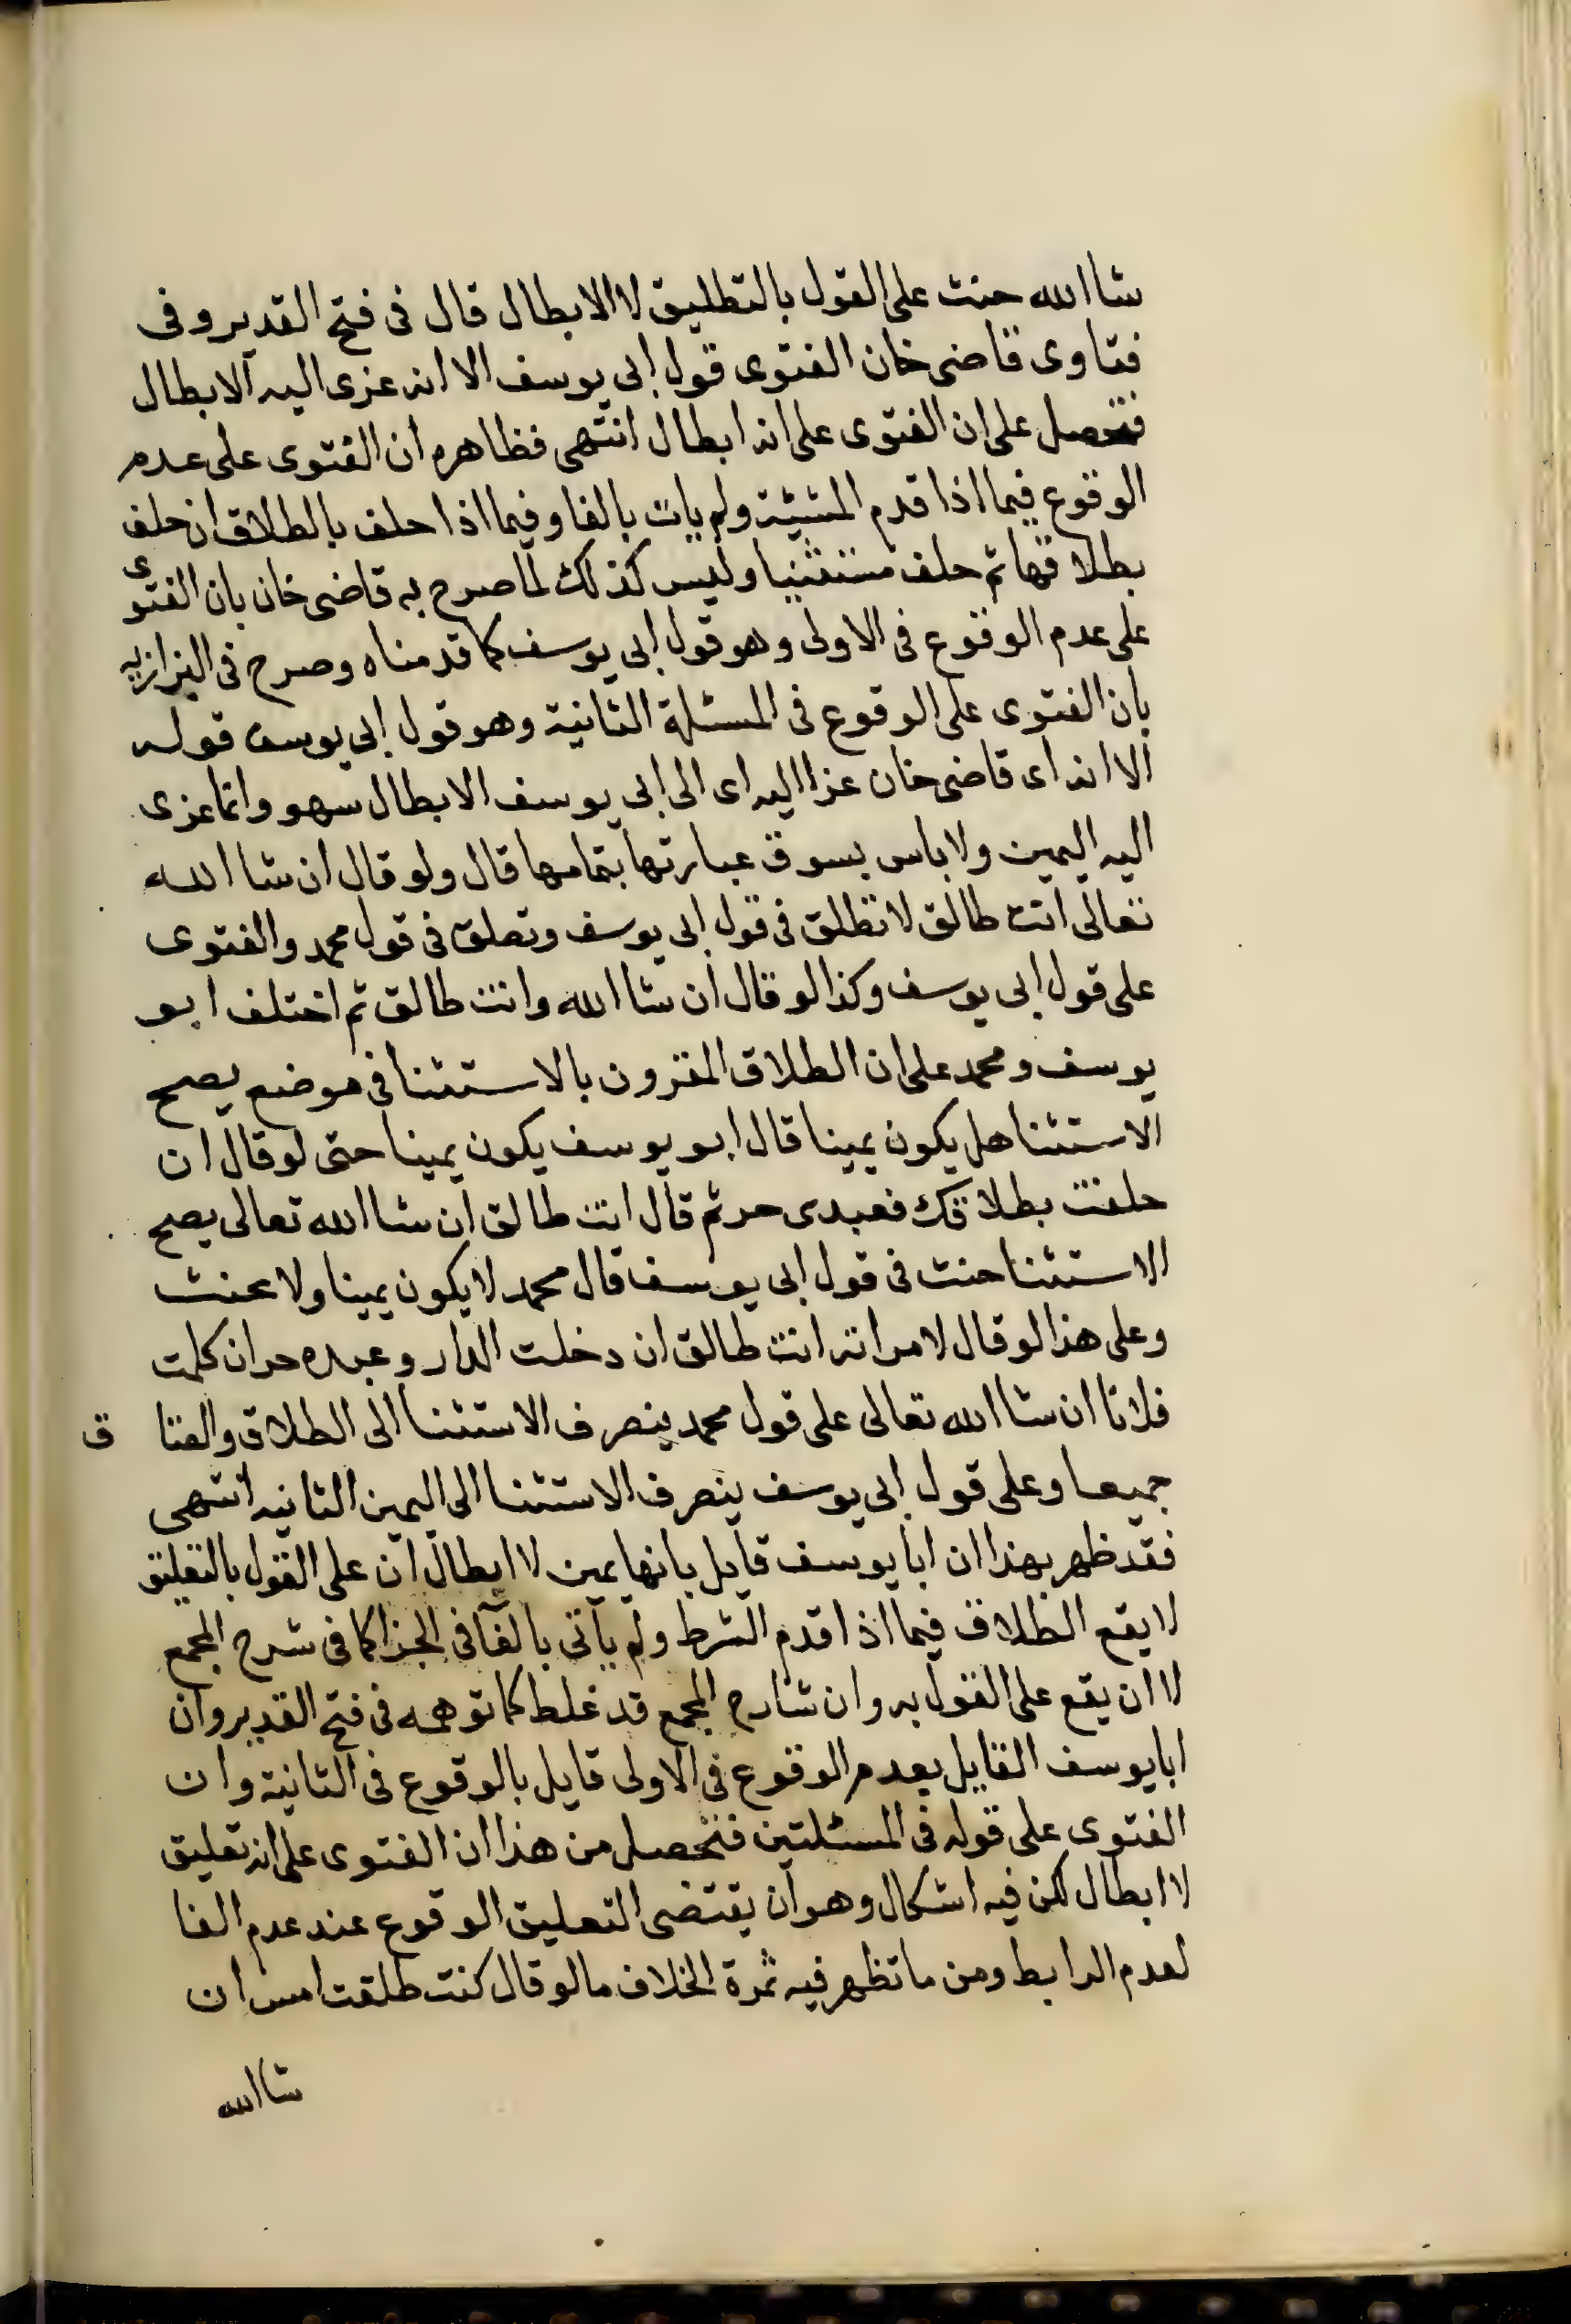 شاالله حنث على القول بالتطليق لا الابطال قال فى فتح القدير وفى
فتاوى قاضى خان الفتوى قول ابى يوسف الا انه عزى اليه الابطال
فتحصل على ان الفتوى على انه ابطال انتهى فظاهره ان الفتوى على عدم
الوقوع فيما اذا قدم المشيئة ولم يات بالفا وفيما اذا حلف بالطلاق ان حلف
بطلاقها ثم حلف مستثنيا وليس كذلك لما صرح به قاضى خان بان الفتوى
على عدم الوقوع فى الاولى وهو قول ابى يوسف كما قدمناه وصرح فى البزازيه
بان الفتوى على الوقوع فى المسئلة الثانية وهو قول ابى يوسف قوله
الا انه اى قاضى خان عزا اليه اى الى ابى يوسف الابطال سهو وانما عزى
اليه اليمين ولا باس بسوق عبارتها بتمامها قال ولو قال ان شا الله
تعالى انت طالق لا تطلق فى قول ابى يوسف وتطلق فى قول محمد والفتوى
على قول ابى يوسف وكذا لو قال ان شا الله وانت طالق ثم اختلف ابو
يوسف ومحمد على ان الطلاق المقرون بالاستثنا فى موضع يصح
الاستثنا هل يكون يمينا قال ابو يوسف يكون يمينا حتى لو قال ان
حلفت بطلاقك فعبدى حر ثم قال انت طالق ان شا الله تعالى يصح
الاستثنا حنث فى قول ابى يوسف قال محمد لا يكون يمينا ولا يحنث
وعلى هذا لو قال لامراته انت طالق ان دخلت الدار وعبده حر ان كلمت
فلانا ان شا الله تعالى على قول محمد ينصرف الاستثنا الى الطلاق والعتا ق
جميعا وعلى قول ابى يوسف ينصرف الاستثنا الى اليمين الثانيه انتهى
فقد ظهر بهذا ان ابا يوسف قايل بانها يمين لا ابطال ان على القول بالتعليق
لا يقع الطلاق فيما اذا قدم الشرط ولم ياتى بالفا فى الجزا كما فى شرح المجمع
لا ان يقع على القول به وان شارح المجمع قد غلط كما توهمه فى فتح القدير وان
ابا يوسف القايل بعدم الوقوع فى الاولى قايل بالوقوع فى الثانية وان
الفتوى على قوله فى المسئلتين فتحصل من هذا ان الفتوى على انه تعليق
لا ابطال لكن فيه اشكال وهو ان يقتضى التعليق الوقوع عند عدم الفا
لعدم الرابط ومن ما تظهر فيه ثمرة الخلاف ما لو قال كنت طلقت امس ان
شاالله